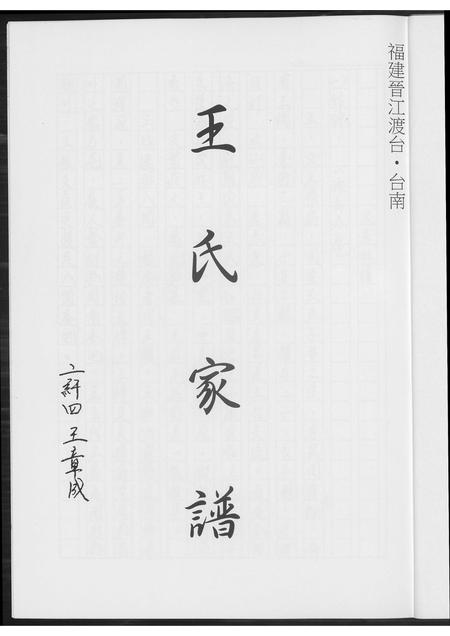 福建晉江渡台・台南
王氏家譜
六絣四 王章成